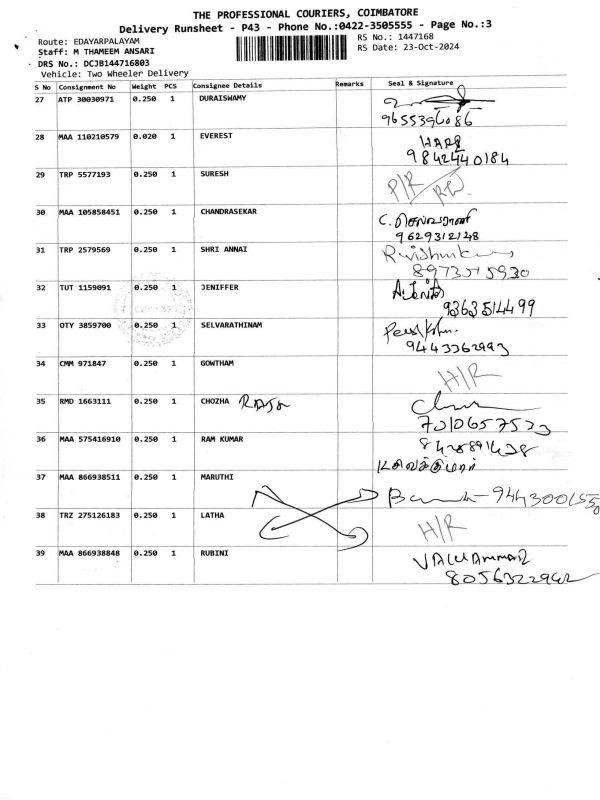 THE PROFESSIONAL COURIERS, COIMBATORE
Delivery Runsheet - P43 - Phone No.:0422-3505555 - Page No.:3
Route: EDAYARPALAYAM
RS No.: 1447168
Staff: M THAMEEM ANSARI
RS Date: 23-Oct-2024
DRS No.: DCJB144716803
Vehicle: Two Wheeler Delivery
S No Consignment No Weight PCS Consignee Details Remarks Seal & Signature
27 ATP 30030971 0.250 1 DURAISWAMY
9655396086
28 MAA 110210579 0.020 1 EVEREST
HARI
9842440184
29 TRP 5577193 0.250 1 SURESH P/R
30 MAA 105858451 0.250 1 CHANDRASEKAR
C. செல்வராணி
9629312148
31 TRP 2579569 0.250 1 SHRI ANNAI
8973515930
32 TUT 1159091 0.250 1 JENIFFER
9363514499
33 OTY 3859700 0.250 1 SELVARATHINAM
9443362993
34 CMM 971847 0.250 1 GOWTHAM H/R
35 RMD 1663111 0.250 1 CHOZHA RAJA
7010657533
36 MAA 575416910 0.250 1 RAM KUMAR
37 MAA 866938511 0.250 1 MARUTHI
38 TRZ 275126183 0.250 1 LATHA H/R
39 MAA 866938848 0.250 1 RUBINI
8056322942